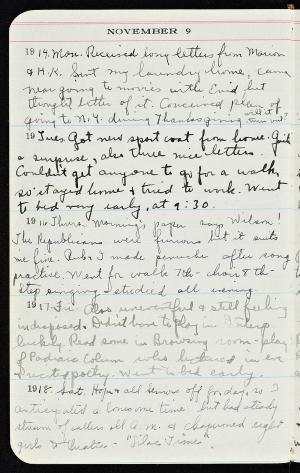 NOVEMBER 9
1914. Mon. Received long letters from Marion
& H.K. Sent my laundry home, came
near going to movies with Enid but
thought better of it. Conceived plan of
going to N.Y. during Thanksgiving will it
turn out?
19 Tues. Got new sport coat from home. Quite
a surprise, also three nice letters.
Couldn't get anyone to go for a walk,
so stayed home & tried to work. Went
to bed very early, at 9:30.
1916 Thurs. Morning's paper says Wilson!
The Republicans were furious but it suits
me fine. & I made penuche after song
practise. Went for walk 7th - choir 8th -
step singing - studied all evening.
1917 Fri. Also uneventful & still feeling
indisposed. Didn't have to play in
luckily. Read some in Browsing room - play
of Padraic Colum who lectured in eve
on poetry. Went to bed early.
1918 Sat. Hope & all off for day, so I
anticipated a lonesome time but had steady
stream of callers all a.m. & chaperoned eight
girls to theatre - "Lilac Time".